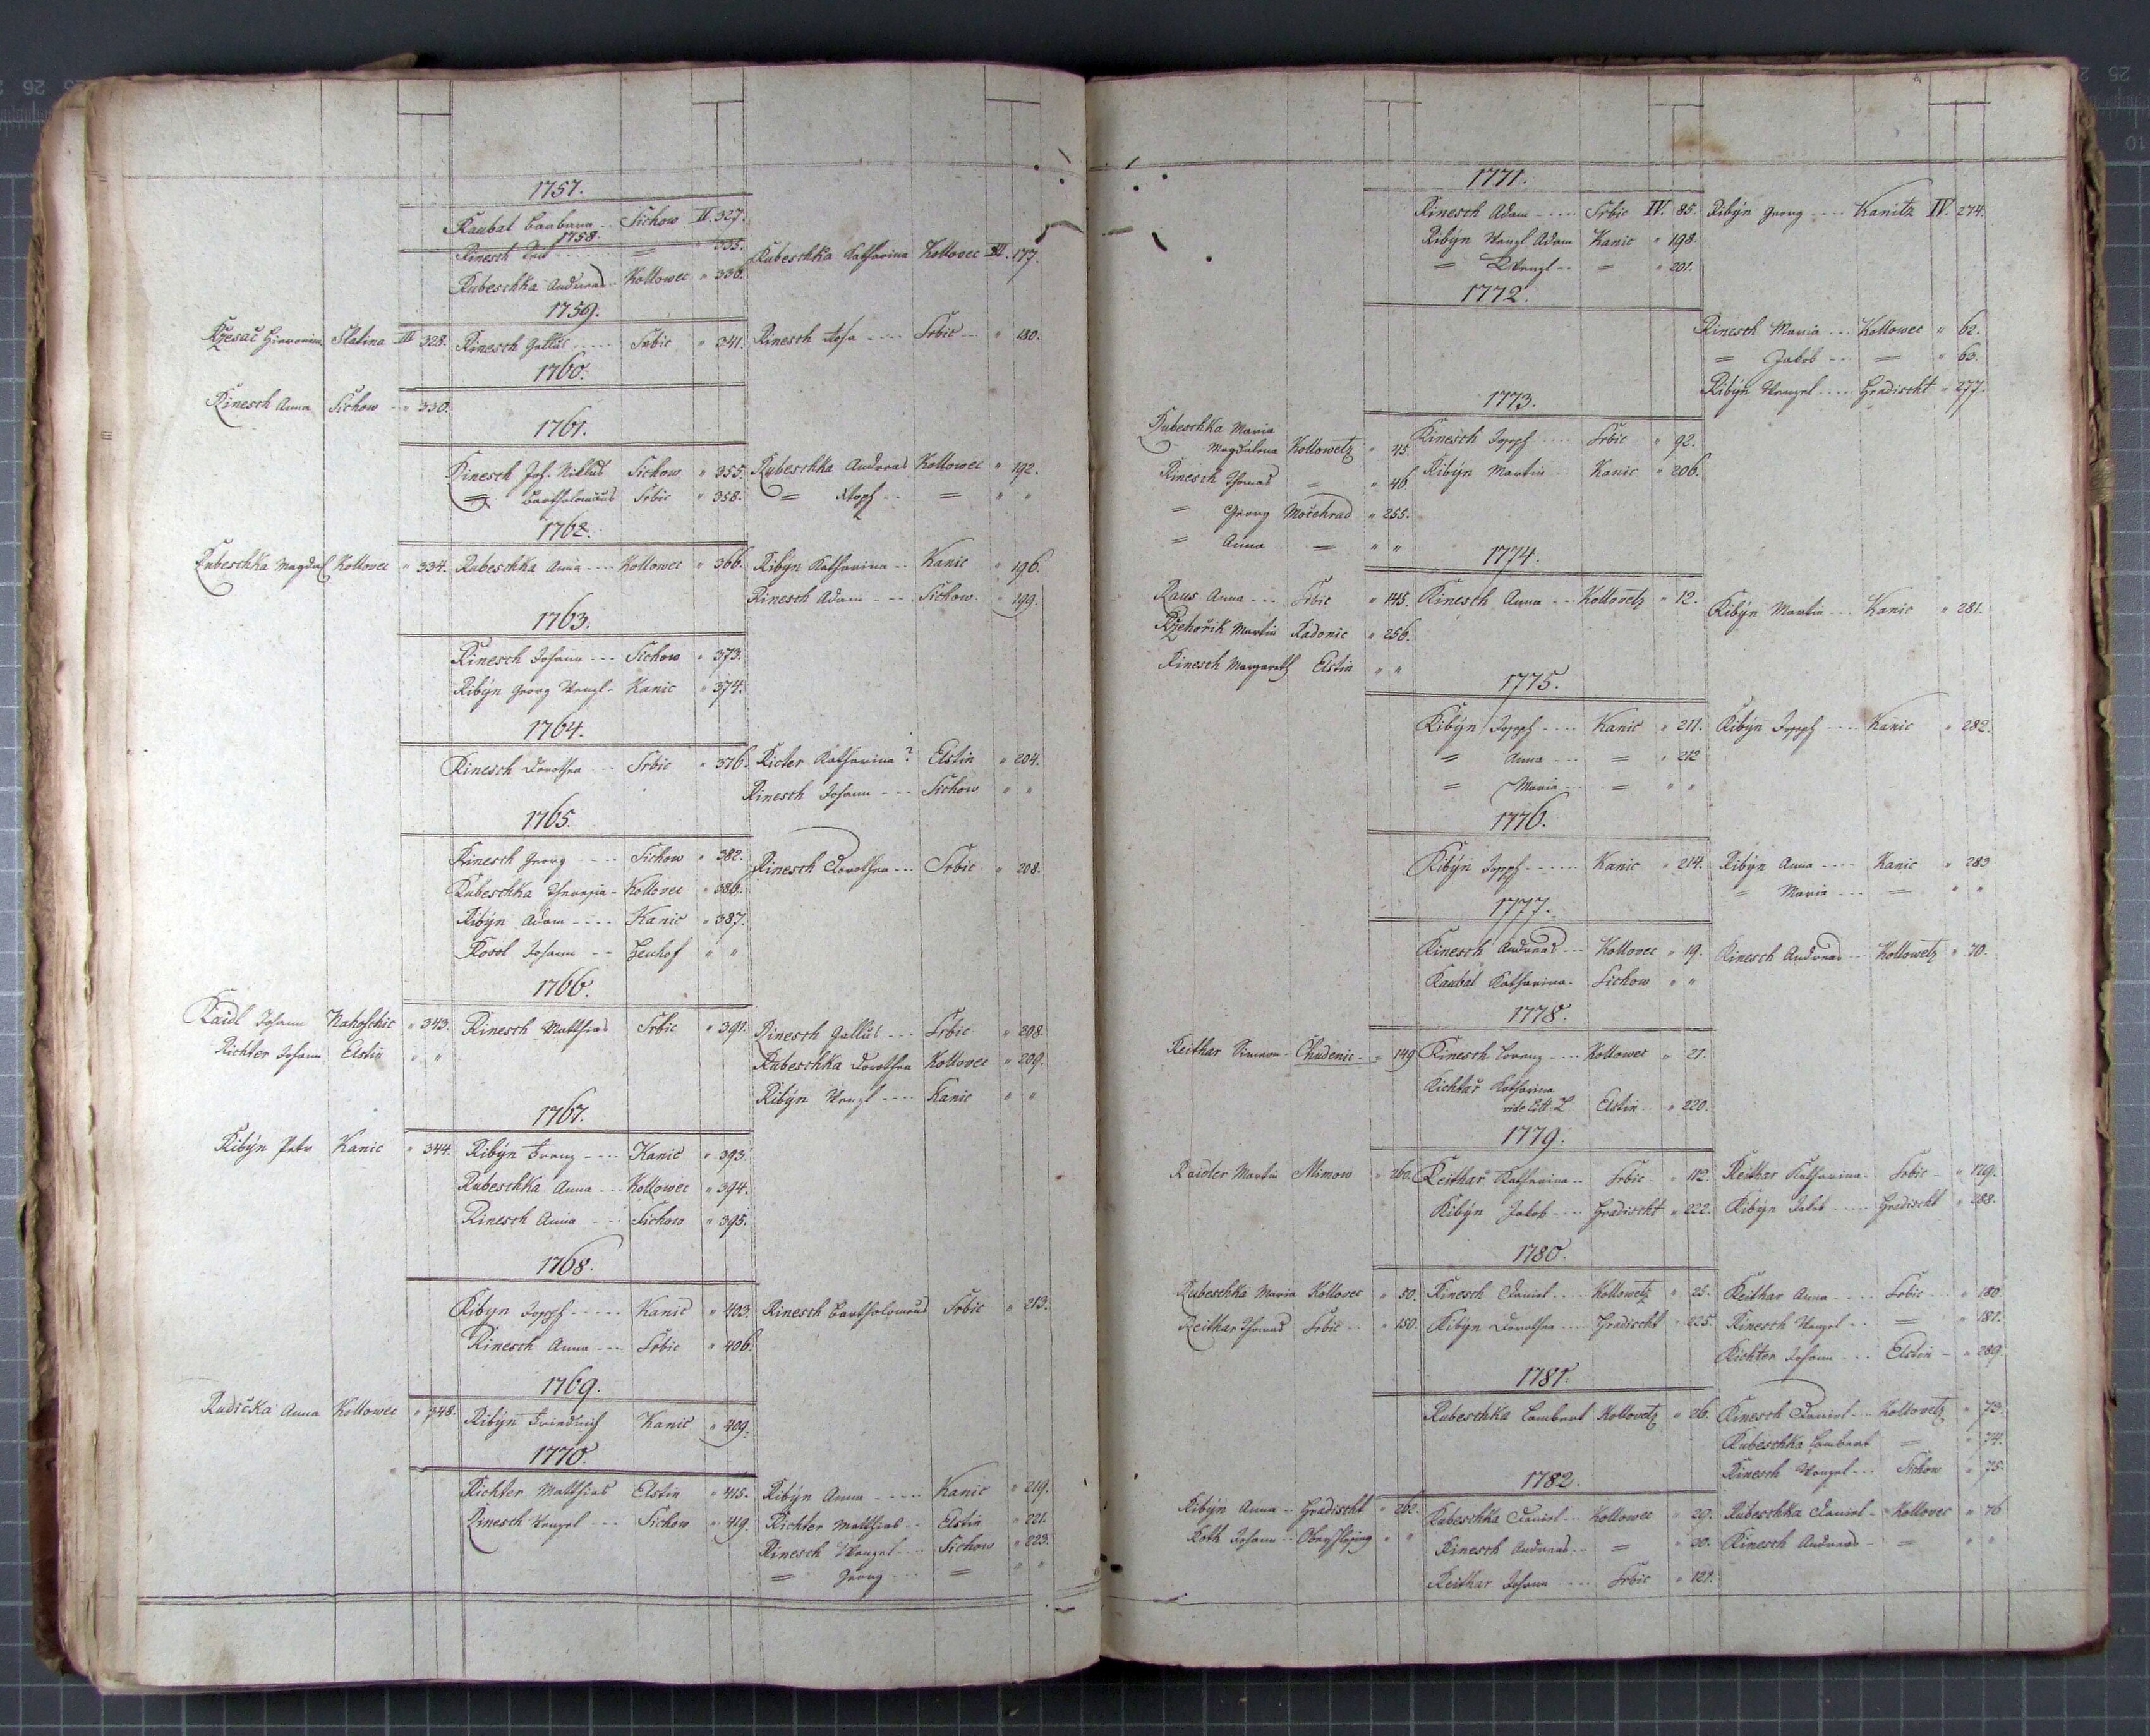 1757.
Raubal Barbara -- Sichow II. 327.
1758.
Rinesch Veit = " 335. Rubeschka Katharina Kollovec III. 177.
Rubeschka Andreas -- Kollowec " 336.
1759.
Rzesač Hieronim. Slatina III 328. Rinesch Gallus ---- Srbic " 341. Rinesch Rosa ---- Srbic -- " 180.
1760.
Rinesch Anna Sichow - " 330.
1761.
Rinesch Joh. Niklas Sichow " 355. Rubeschka Andreas Kollowec " 192.
= Bartholomäus Srbic " 358. = Xtoph -- = " "
1762.
Rubeschka Magdal Kollovec " 334. Rubeschka Anna --- Kollowec " 366. Ribÿn Katharina -- Kanic " 196.
Rinesch Adam --- Sichow. " 199.
1763.
Rinesch Johann --- Sichow " 373.
Ribÿn Georg Wenzl - Kanic " 374.
1764.
Rinesch Dorothea --- Srbic " 376. Ricter Katharina ? Elstin " 204.
Rinesch Johann --- Sichow " "
1765.
Rinesch Georg ---- Sichow " 382. Rinesch Dorothea --- Srbic " 208.
Rubeschka Theresia - Kollovec " 386.
Ribÿn Adam ---- Kanic " 387.
Rosol Johann -- Heuhof " "
1766.
Raidl Johann Nahoschic " 343. Rinesch Matthias Srbic " 391. Rinesch Gallus --- Srbic " 208.
Richter Johann Elstin " " Rubeschka Dorothea Kollovec " 209.
Ribÿn Wenzl ---- Kanic " "
1767.
Ribÿn Petr Kanic " 344. Ribÿn Franz ---- Kanic " 393.
Rubeschka Anna --- Kollowec " 394.
Rinesch Anna --- Sichow " 395.
1768.
Ribyn Joseph ----- Kanic " 403. Rinesch Bartholomäus Srbic " 213.
Rinesch Anna --- Srbic " 406.
1769.
Radička Anna Kollowec " 348. Ribÿn Friedrich Kanic " 409.
1770.
Richter Matthias Elstin " 415. Ribÿn Anna ----- Kanic " 219.
Rinesch Wenzel --- Sichow " 419. Richter Matthias -- Elstin " 221.
Rinesch Wenzel --- Sichow " 223.
= Georg --- = " "
1771.
Rinesch Adam ----- Srbic IV. 85. Ribÿn Georg ---- Kanitz IV. 274.
Ribÿn Wenzl Adam Kanic " 198.
= Wenzl -- = " 201.
1772.
Rinesch Maria --- Kollowec " 62.
= Jakob --- = " 63.
Ribÿn Wenzel ---- Hradischt " 277.
1773.
Rubeschka Maria
Magdalena Kollowetz " 45. Rinesch Joseph ---- Srbic " 92.
Rinesch Thomas = " 46 Ribÿn Martin -- Kanic " 206.
= Georg Močehrad " 255.
= Anna = " "
1774.
Raus Anna --- Srbic " 145. Rinesch Anna --- Kollovetz " 12. Ribÿn Martin --- Kanic " 281.
Rzehořik Martin Radonic " 256.
Rinesch Margareth Elstin " "
1775.
Ribÿn Joseph ---- Kanic " 211. Ribÿn Joseph ---- Kanic " 282.
= Anna --- = " 212
= Maria --- = " "
1776.
Ribÿn Joseph ------ Kanic " 214. Ribÿn Anna ---- Kanic " 283
= Maria --- = " "
1777.
Rinesch Andreas --- Kollovec " 19. Rinesch Andreas -- Kollowetz " 70.
Raubal Katharina. Sichow " "
1778.
Reithar Simeon - Chudenic - " 149 Rinesch Lorenz ---- Kollowec " 21.
Richtař Katharina
vide Litt L Elstin " 220.
1779.
Raidler Martin Mimow " 260. Reithař Katharina -- Srbic - " 112. Reithar Katharina - Srbic - " 179.
Ribÿn Jakob ---- Hradischt " 222. Ribÿn Jakob ---- Hradischt " 288.
1780.
Rubeschka Maria Kollovec " 50. Rinesch Daniel ---- Kollowetz " 25. Reithar Anna ---- Srbic " 180
Reithar Thomas Srbic -- " 150. Ribÿn Dorothea ---- Hradischt " 225. Rinesch Wenzel -- = " 181.
Richter Johann --- Elstin - " 289.
1781.
Rubeschka Lambert Kollovetz " 26. Rinesch Daniel --- Kollovetz " 73.
Rubeschka Lambert = " 74.
Rinesch Wenzel --- Sichow " 75.
1782.
Ribÿn Anna -- Hradischt " 262. Rubeschka Daniel --- Kollowec " 29. Rubeschka Daniel - Kollovec " 76
Roth Johann -- " " Rinesch Andreas -- = " 30. Rinesch Andreas - = " "
Reithar Johann ---- Srbic " 121.